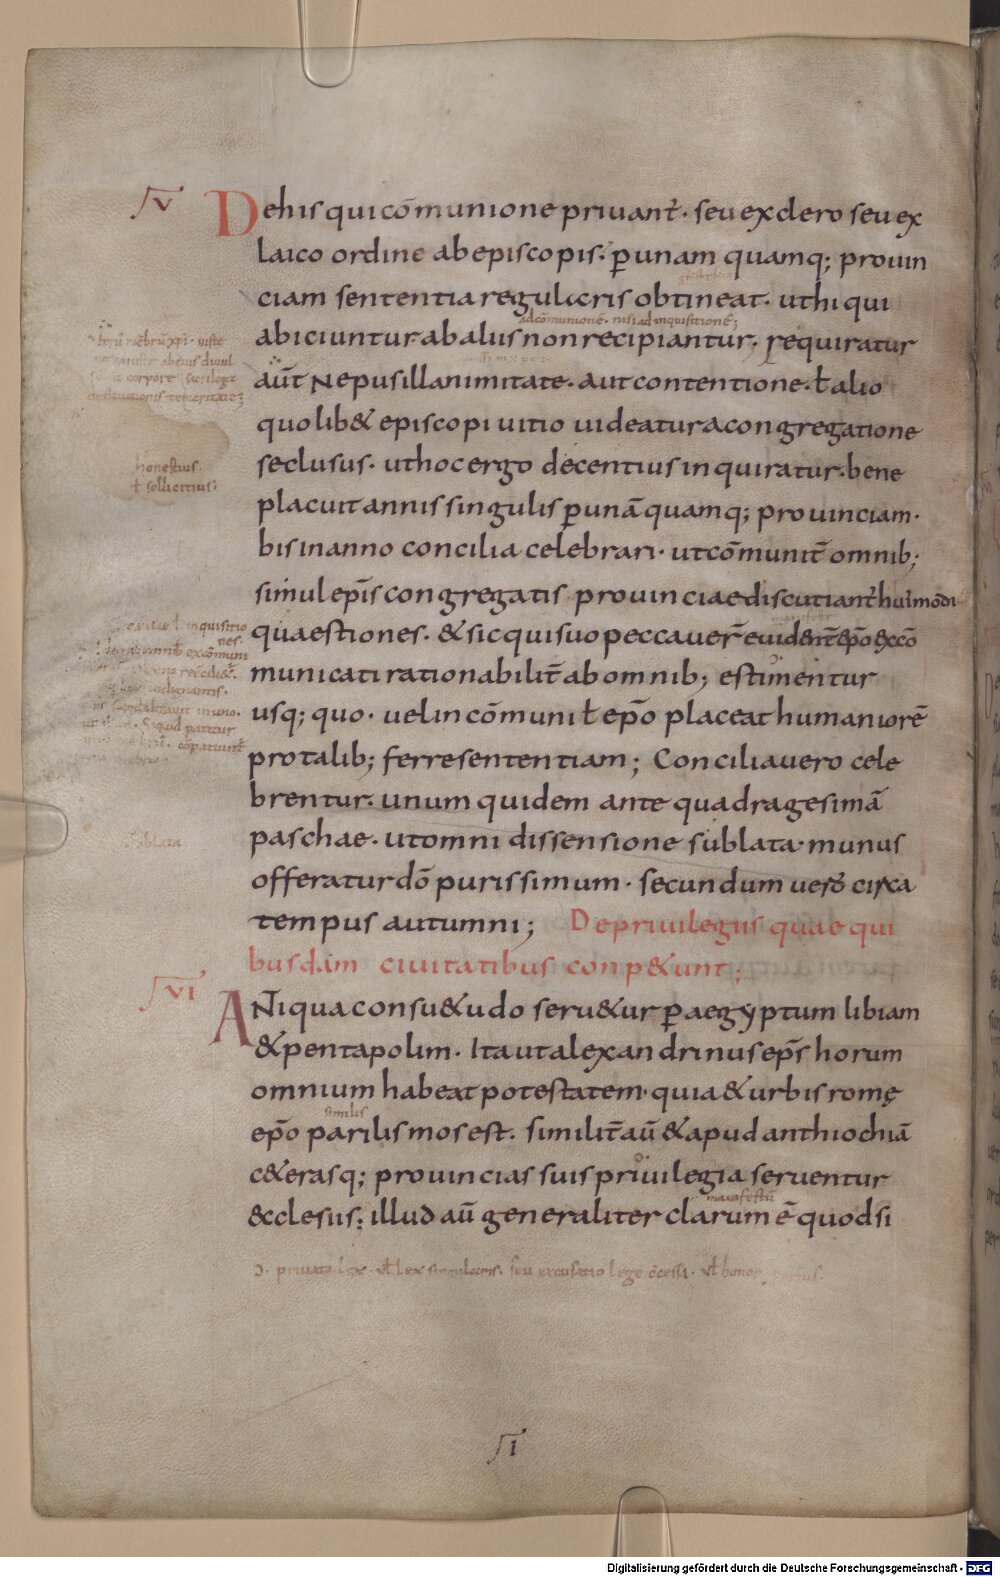 V
Dehis qui cōmunione priuanť · seu ex clero seu ex
laico ordine ab episcopis · ꝑ unam quamq; prouin
ciam sententia regularis obtineat · ut hi qui
ad cōmunionē · nisi ad inquisitionē;
abiciuntur ab aliis non recipiantur · requiratur
aūt Ne pusillanimitate · aut contentione · ł alio
quolib& episcopi uitio uideatur a congregatione
seclusus · ut hoc ergo decentius inquiratur · bene
honestius ·
ł sollicitius ·
placuit annis singulis ꝑ unā quamq; prouinciam ·
bis in anno concilia celebrari · ut cōmunit̄ omnib;
simul ep̄is congregatis prouinciae discutianť huīmodi
quaestiones · & sic qui suo peccauer̄ euident̄ ep̄o excō
municati rationabilit̄ ab omnib; estimentur
usq; quo · uel in cōmuni ł ep̄o placeat humaniorē
pro talib; ferre sententiam; Concilia uero cele
brentur · unum quidem ante quadragesimā
paschae · ut omni dissensione sublata · munus
offeratur dō purissimum · secundum uero circa
tempus autumni; De priuilegiis quae qui
busdam ciuitatibus conp&unt;
VI
ANtiqua consu&udo seru&ur ꝑ aegyptum libiam
& pentapolim · Ita ut alexandrinus ep̄s horum
omnium habeat potestatem · quia & urbis romę
similis
ep̄o parilis mos est · similit̄ aū & apud anthiochiā
c&erasq; prouincias suis priuilegia seruentur
manifestū
&cclesiis; illud aū generaliter clarum ē quod si
I
Digitalisierung gefördert durch die Deutsche Forschungsgemeinschaft - DFG